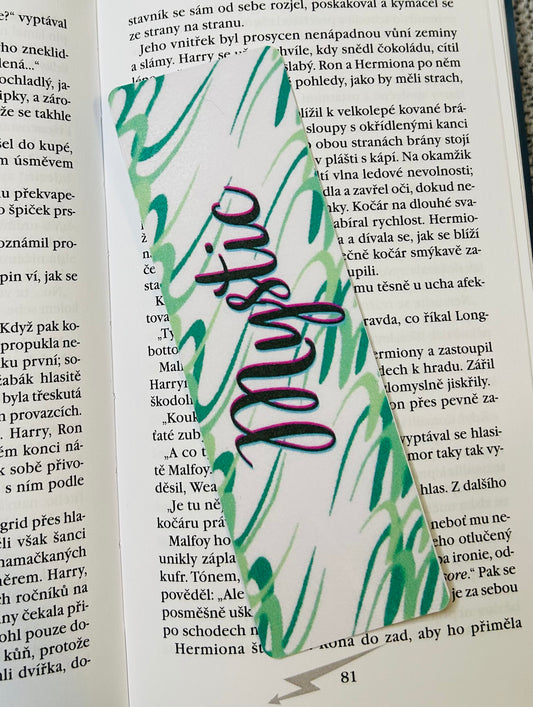 ne?“ vyptával
zneklid-
ená...“
ochladlý, ja-
ipky, a záro-
že se takhle
šel do kupé,
m úsměvem
u překvape-
o špiček prs-
oznámil pro-
pin ví, jak se
Když pak ko-
propukla ne-
ku první; so-
žabák hlasitě
byla třeskutá
provazcích.
. Harry, Ron
m konci ná-
k sobě přivo-
s ním podle
grid přes hla-
li však šanci
namačkaných
měrem. Harry,
ch ročníků na
ny čekala při-
ohl pouze do-
kůň, protože
li dvířka, do-
stavník se sám od sebe rozjel, poskakoval a kymácel se
ze strany na stranu.
Jeho vnitřek byl prosycen nenápadnou vůní zeminy
a slámy. Harry se chvíle, kdy snědl čokoládu, cítil
slabý. Ron a Hermiona po něm
pohledy, jako by měli strach,
blížil k velkolepé kované brá-
sloupy s okřídlenými kanci
obou stranách brány stojí
v plášti s kápí. Na okamžik
vlna ledové nevolnosti;
dla a zavřel oči, dokud ne-
nky. Kočár na dlouhé sva-
abíral rychlost. Hermio-
a dívala se, jak se blíží
ečně kočár smýkavě za-
oupili.
mu těsně u ucha afek-
tova
„Ty
ravda, co říkal Long-
botto
Malf
ermiony a zastoupil
Harrym
dech k hradu. Zářil
škodol
domyslně jiskřily.
„Kouk
on přes pevně za-
ťaté zub
„A co t
vyptával se hlasi-
tě Malfoy.
mor taky tak vy-
děsil, Wea
„Je tu ně
hlas. Z dalšího
kočáru prá
Malfoy ho
neboť mu ne-
unikly zápla
otlučený
kufr. Tónem,
a ironie, od-
pověděl: „Ale
sore.“ Pak se
posměšně ušk
je za sebou
po schodech n
Hermiona št
kona do zad, aby ho přiměla
81
Mystic